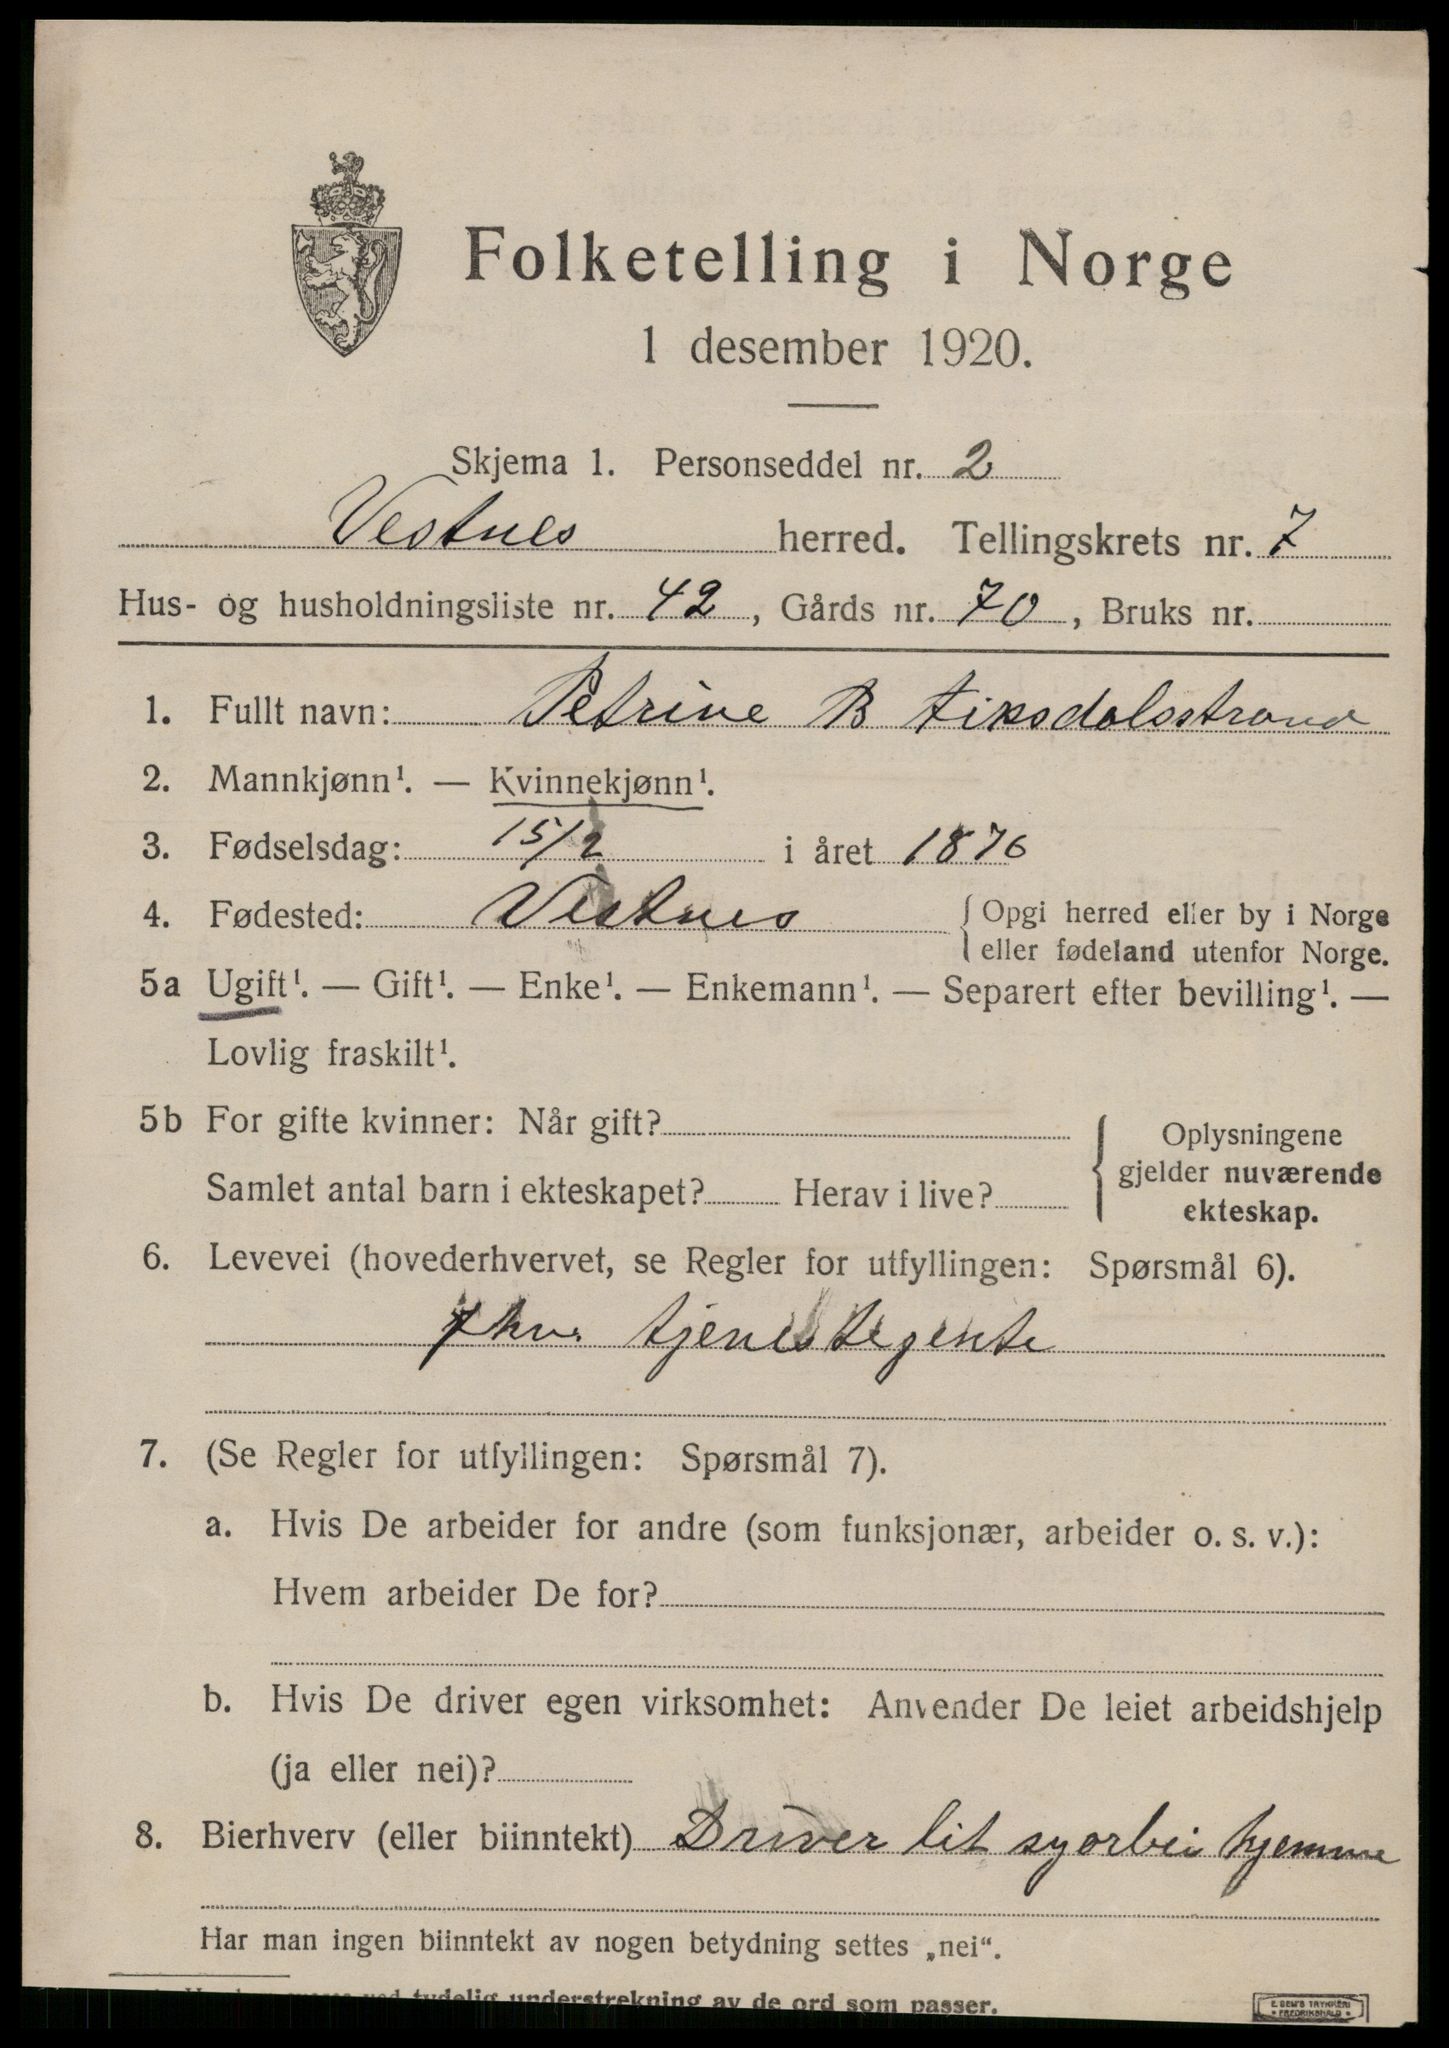 Folketelling i Norge
1 desember 1920.
Skjema 1. Personseddel nr. 2
Vestnes herred. Tellingskrets nr. 7
Hus- og husholdningsliste nr. 42, Gårds nr. 70, Bruks nr.
1. Fullt navn: Petrine B Fiksdalsstrand
2. Mannkjønn¹. — Kvinnekjønn¹.
3. Fødselsdag: 15/2 i året 1876
4. Fødested: Vestnes { Opgi herred eller by i Norge
eller fødeland utenfor Norge.
5a Ugift¹. — Gift¹. — Enke¹. — Enkemann¹. — Separert efter bevilling¹. —
Lovlig fraskilt¹.
5b For gifte kvinner: Når gift? { Oplysningene
gjelder nuværende
Samlet antal barn i ekteskapet? Herav i live?
ekteskap.
6. Levevei (hovederhvervet, se Regler for utfyllingen: Spørsmål 6).
hv. tjenestegente
7. (Se Regler for utfyllingen: Spørsmål 7).
a. Hvis De arbeider for andre (som funksjonær, arbeider o. s. v.):
Hvem arbeider De for?
b. Hvis De driver egen virksomhet: Anvender De leiet arbeidshjelp
(ja eller nei)?
8. Bierhverv (eller biinntekt) Driver lit syarbei hjemme
Har man ingen biinntekt av nogen betydning settes „nei“.
ved tydelig understrekning av de ord som passer.
E. SEM'S TRYKKERI
• FREDRIKSHALD •